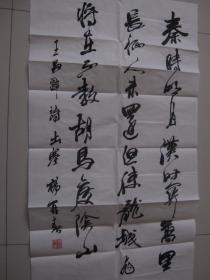 秦時明月漢时關萬里
長征人未還但使龍城飛
將在不教胡馬度陰山
王昌齡詩出塞 楊